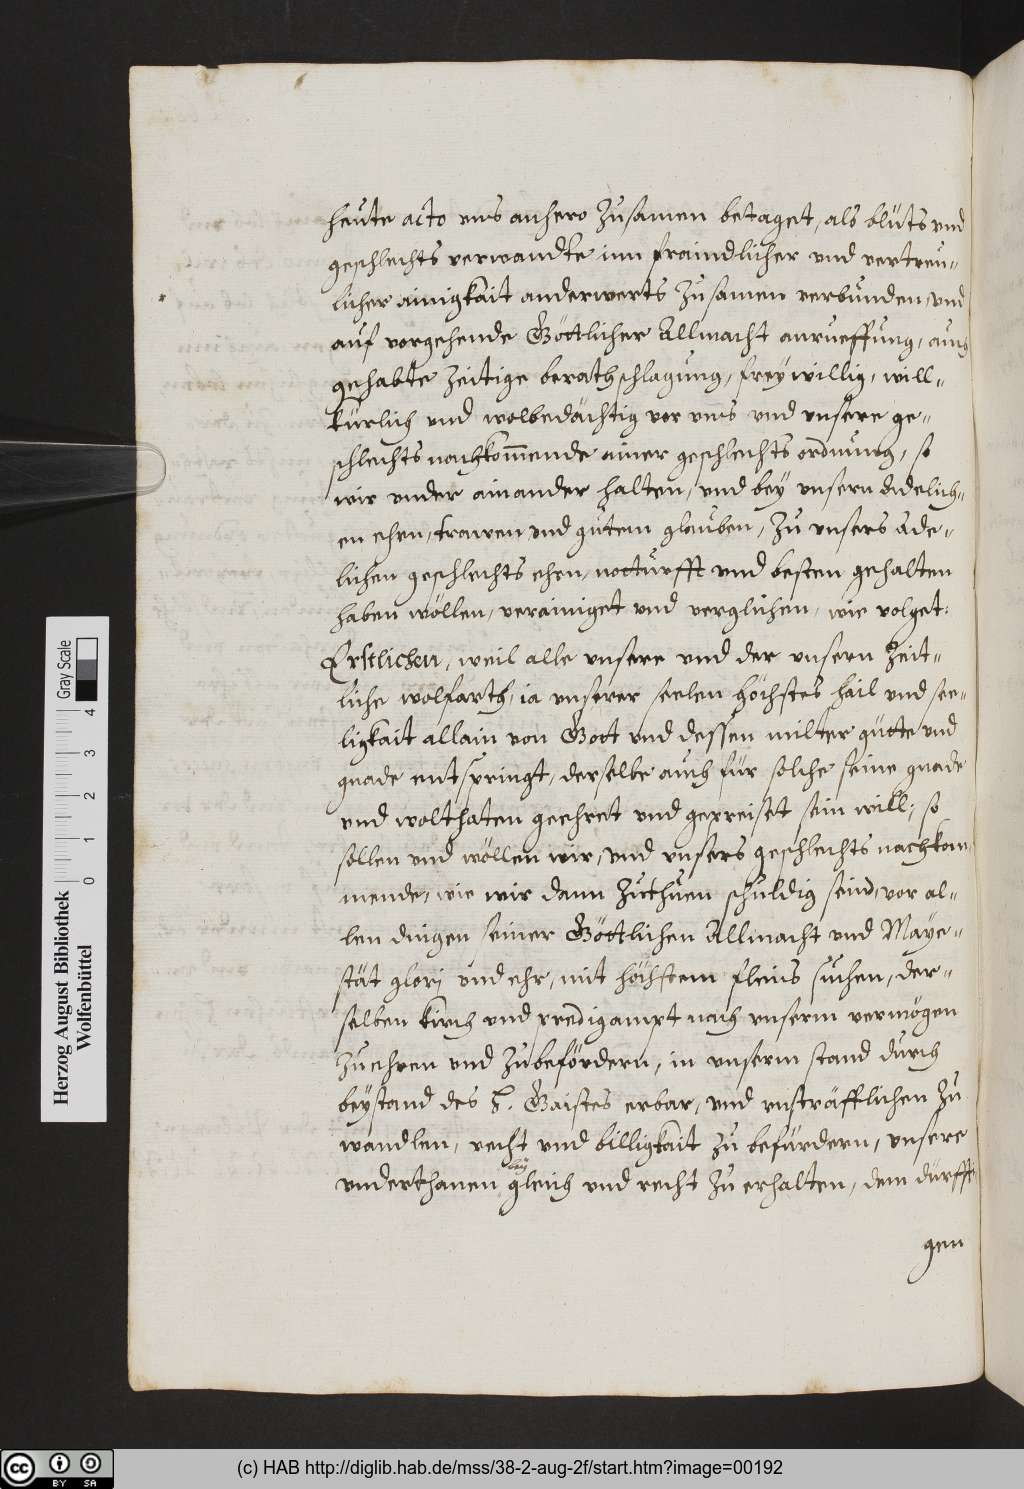 heute acto vns anhero zusamen betaget, als bluts vnd
geschlechts verwandte inn fraindlicher vnd vertreu-
licher ainigkait anderwerts zusamen verbunden, vnd
auf vorgehende Göttlicher Allmacht anrueffung, auch
gehabte zeitige berathschlagung, freywillig, will-
kürlich vnd wolbedächtig vor vnns vnd vnsere ge-
schlechts nachkom̄ende ainer geschlechts ordnung, so
wir vnder ainander halten, vnd bey vnsern Adelich-
en ehrn, trawen vnd gutem glauben, zu vnsers Ade-
lichen geschlechts ehrn, notturfft vnd besten gehalten
haben wöllen, verainiget vnd verglichen, wie volget:
Erstlichen, weil alle vnsere vnd der vnsern zeit-
liche wolfarth, ia vnserer seelen höchstes hail vnd see-
ligkait allain von Gott vnd dessen milter gütte vnd
gnade entspringt, derselbe auch für solche seine gnade
vnd wolthaten geehret vnd gepreiset sein will; so
sollen vnd wöllen wir, vnd vnsers geschlechts nachkom
mende, wie wir dann zuthuen schuldig seind, vor al-
len dingen seiner Göttlichen Allmacht vnd Maye-
stät glorj vnd ehr, mit höchstem fleiss suchen, der-
selben kirch vnd predigampt nach vnserm vermögen
zuehren vnd zubefördern, in vnserm stand durch
beystand des H. Gaistes erbar, vnd vnsträfflichen zu
wandlen, recht vnd billigkait zu befürdern, vnsere
vnderthanen bey gleich vnd recht zu erhalten, dem dürfft
gen
Herzog August Bibliothek
Wolfenbüttel
0 1 2 3 4
Gray Scale
(c) HAB http://diglib.hab.de/mss/38-2-aug-2f/start.htm?image=00192
cc BY SA